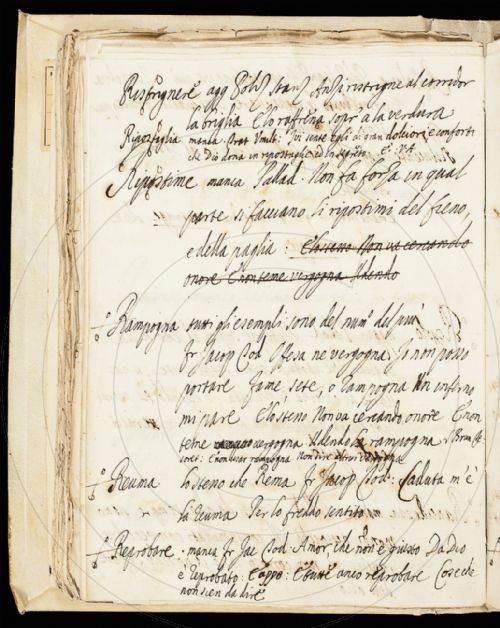 Ristrignere agg Poliz stanz Anzi ristrigne al corridor
la briglia E lo raffrena sopr' a la verdura
Ripostiglia manca Trat Umilt. Ivi sente egli di gran dolciori e conforti
che Dio dona in ripostaglie ed in segreto
Ripostime manca Pallad. Non fa forza in qual
parte si facciano li ripostimi del fieno,
e della paglia:
onore E non teme vergogna Udendo
Rampogna tutti gli esempli sono del num° del più
fr Jacop Tod Offesa ne vergogna Io non posso
portare fame, sete, o rampogna Un inferno
mi pare E lo steno Non va cercando onore E non
teme vergogna Udendo rampogna
Reuma lo steno che Rema fr Jacop Tod: Caduta m' è
la reuma Per lo freddo sentito
Reprobare. manca fr Jac Tod. Amor, che non è giusto Da Dio
è reprobato: E appo: E fatte anco reprobare Cose che
non sien da dire